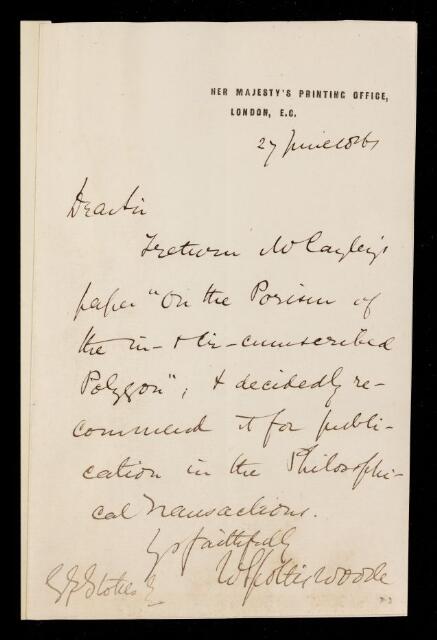 HER MAJESTY'S PRINTING OFFICE,
LONDON, E.C.
27 June 1861
Dear Sir
I return Mr Cayley's
paper "On the Porism of
the in- & cir-cumscribed
Polygon"; & decidedly re-
commend it for publi-
cation in the Philosophi-
cal Transactions.
Yrs faithfully
W Spottiswoode
G G Stokes